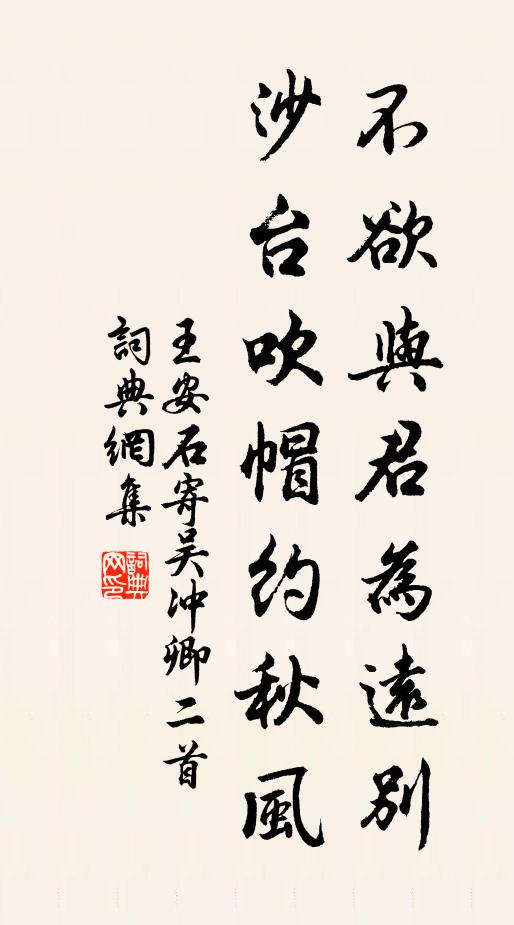 不欲與君為遠別
沙台吹帽約秋風
王安石寄吴沖卿二首
詞典網集
詞典网印